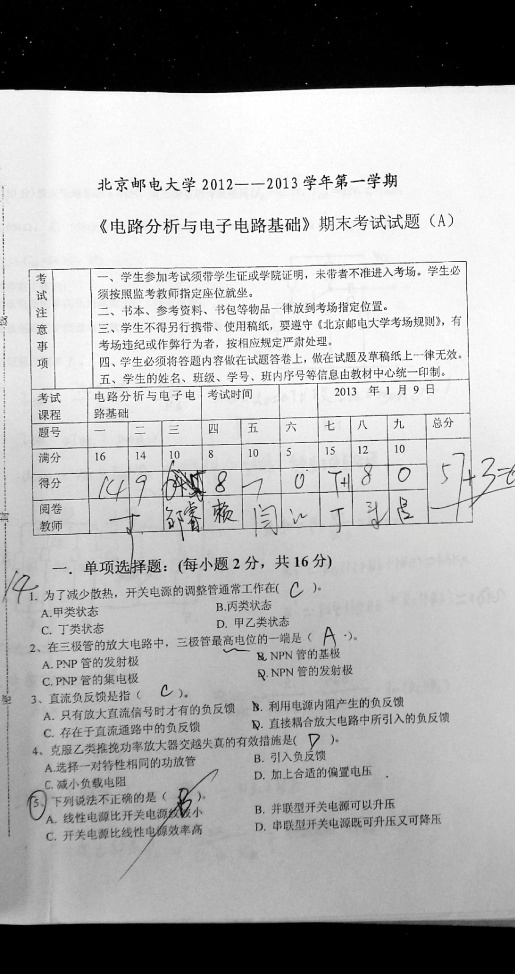 北京邮电大学2012——2013学年第一学期
《电路分析与电子电路基础》期末考试试题（A）
考试注意事项
一、学生参加考试须带学生证或学院证明，未带者不准进入考场。学生必
须按照监考教师指定座位就坐。
二、书本、参考资料、书包等物品一律放到考场指定位置。
三、学生不得另行携带、使用稿纸，要遵守《北京邮电大学考场规则》，有
考场违纪或作弊行为者，按相应规定严肃处理。
四、学生必须将答题内容做在试题答卷上，做在试题及草稿纸上一律无效。
五、学生的姓名、班级、学号、班内序号等信息由教材中心统一印制。
考试课程 电路分析与电子电路基础 考试时间 2013 年 1 月 9 日
题号 一 二 三 四 五 六 七 八 九 总分
满分 16 14 10 8 10 5 15 12 10
得分 14 9 8 7 0 8 0 57+3=
阅卷教师
一．单项选择题：(每小题 2 分，共 16 分)
14
1. 为了减少散热，开关电源的调整管通常工作在( C )。
A.甲类状态 B.丙类状态
C. 丁类状态 D. 甲乙类状态
2、在三极管的放大电路中，三极管最高电位的一端是（ A ）。
A. PNP 管的发射极 B. NPN 管的基极
C. PNP 管的集电极 D. NPN 管的发射极
3、直流负反馈是指（ C ）。
A. 只有放大直流信号时才有的负反馈 B. 利用电源内阻产生的负反馈
C. 存在于直流通路中的负反馈 D. 直接耦合放大电路中所引入的负反馈
4、克服乙类推挽功率放大器交越失真的有效措施是( D )。
A.选择一对特性相同的功放管 B. 引入负反馈
C. 减小负载电阻 D. 加上合适的偏置电压
5、下列说法不正确的是（ B ）。
A. 线性电源比开关电源纹波小 B. 并联型开关电源可以升压
C. 开关电源比线性电源效率高 D. 串联型开关电源既可升压又可降压